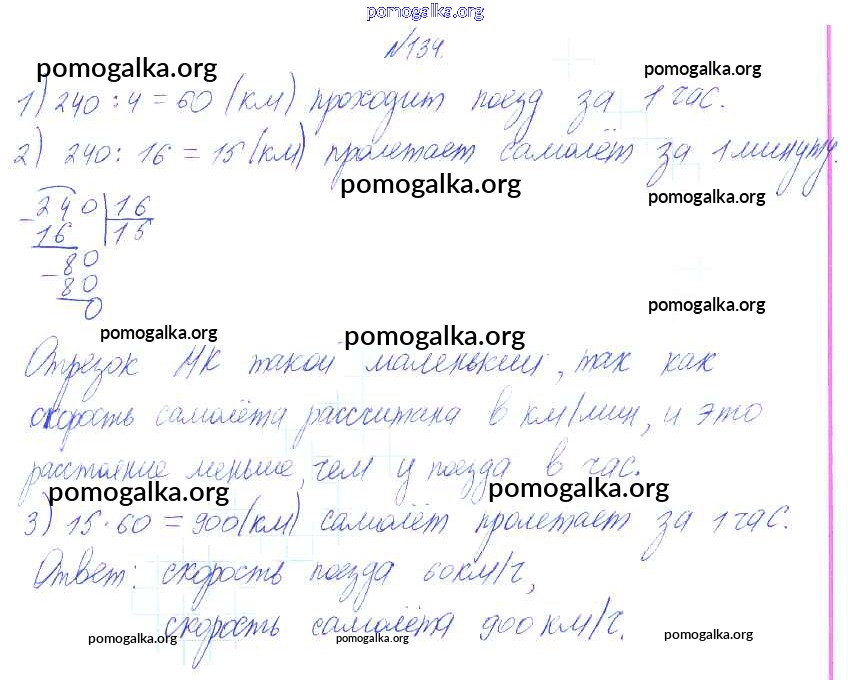 pomogalka.org
№134.
pomogalka.org pomogalka.org
1) 240 : 4 = 60 (км) проходит поезд за 1 час.
2) 240 : 16 = 15 (км) пролетает самолёт за 1 минуту.
pomogalka.org pomogalka.org
240 16
16 15
80
80
0
pomogalka.org pomogalka.org pomogalka.org
Отрезок МК такой маленький, так как
скорость самолёта рассчитана в км/мин, и это
расстояние меньше, чем у поезда в час.
pomogalka.org pomogalka.org
3) 15 · 60 = 900 (км) самолёт пролетает за 1 час.
Ответ: скорость поезда 60 км/ч,
скорость самолёта 900 км/ч.
pomogalka.org pomogalka.org pomogalka.org